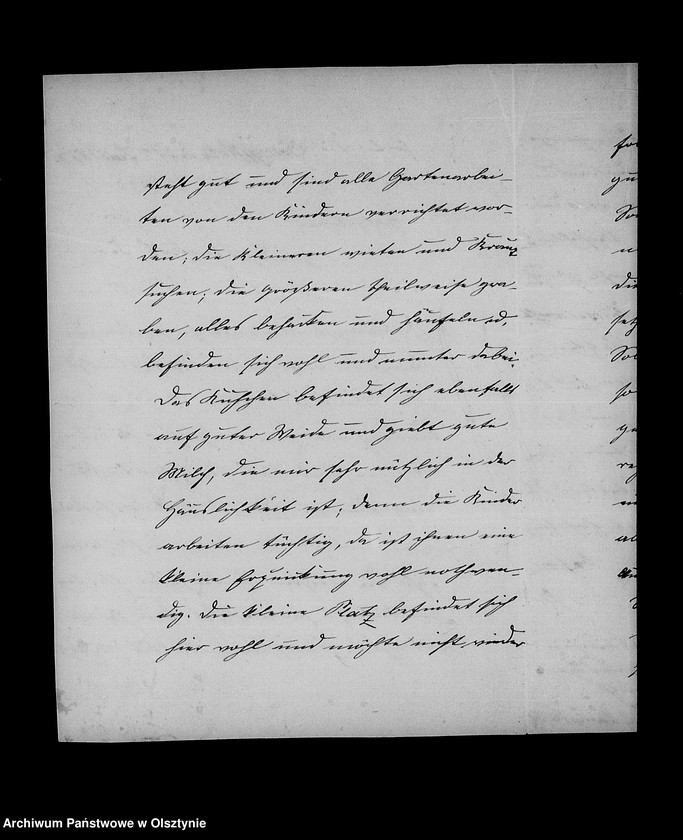 steht gut und sind alle Gartenarbei-
ten von den Kindern verrichtet wor-
den; die Kleineren wieten und Kraut
suchen; die größeren theilweise gra-
ben, alles behacken und häufeln u,
befinden sich wohl und munter dabei.
Das Kuhchen befindet sich ebenfalls
auf guter Weide und giebt gute
Milch, die mir sehr nützlich in der
Häuslichkeit ist; denn die Kinder
arbeiten tüchtig, da ist ihnen eine
kleine Erquickung wohl nothwen-
dig. Die kleine Platz befindet sich
hier wohl und möchte nicht wieder
Archiwum Państwowe w Olsztynie